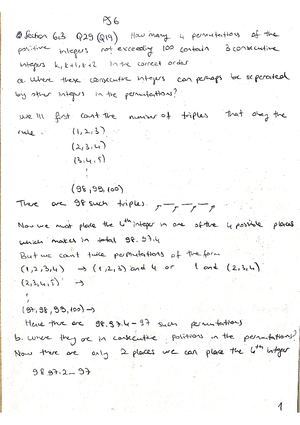 PS 6
Section 6.3 Q29 (Q19) How many 4 permutations of the
positive integers not exceeding 100 contain 3 consecutive
integers k, k+1, k+2 in the correct order
a. Where these consecutive integers can perhaps be seperated
by other integers in the permutations?
We'll first count the number of triples that obey the
rule. (1,2,3)
(2,3,4)
(3,4,5)
⋮
(98,99,100)
There are 98 such triples.
Now we must place the 4th integer in one of the 4 possible places
which makes in total 98.97.4
But we count twice permutations of the form
(1,2,3,4) → (1,2,3) and 4 or 1 and (2,3,4)
(2,3,4,5) →
⋮
(97,98,99,100) →
Hence there are 98.97.4 - 97 such permutations
b. where they are in consecutive positions in the permutations?
Now there are only 2 places we can place the 4th integer
98.97.2 - 97
1